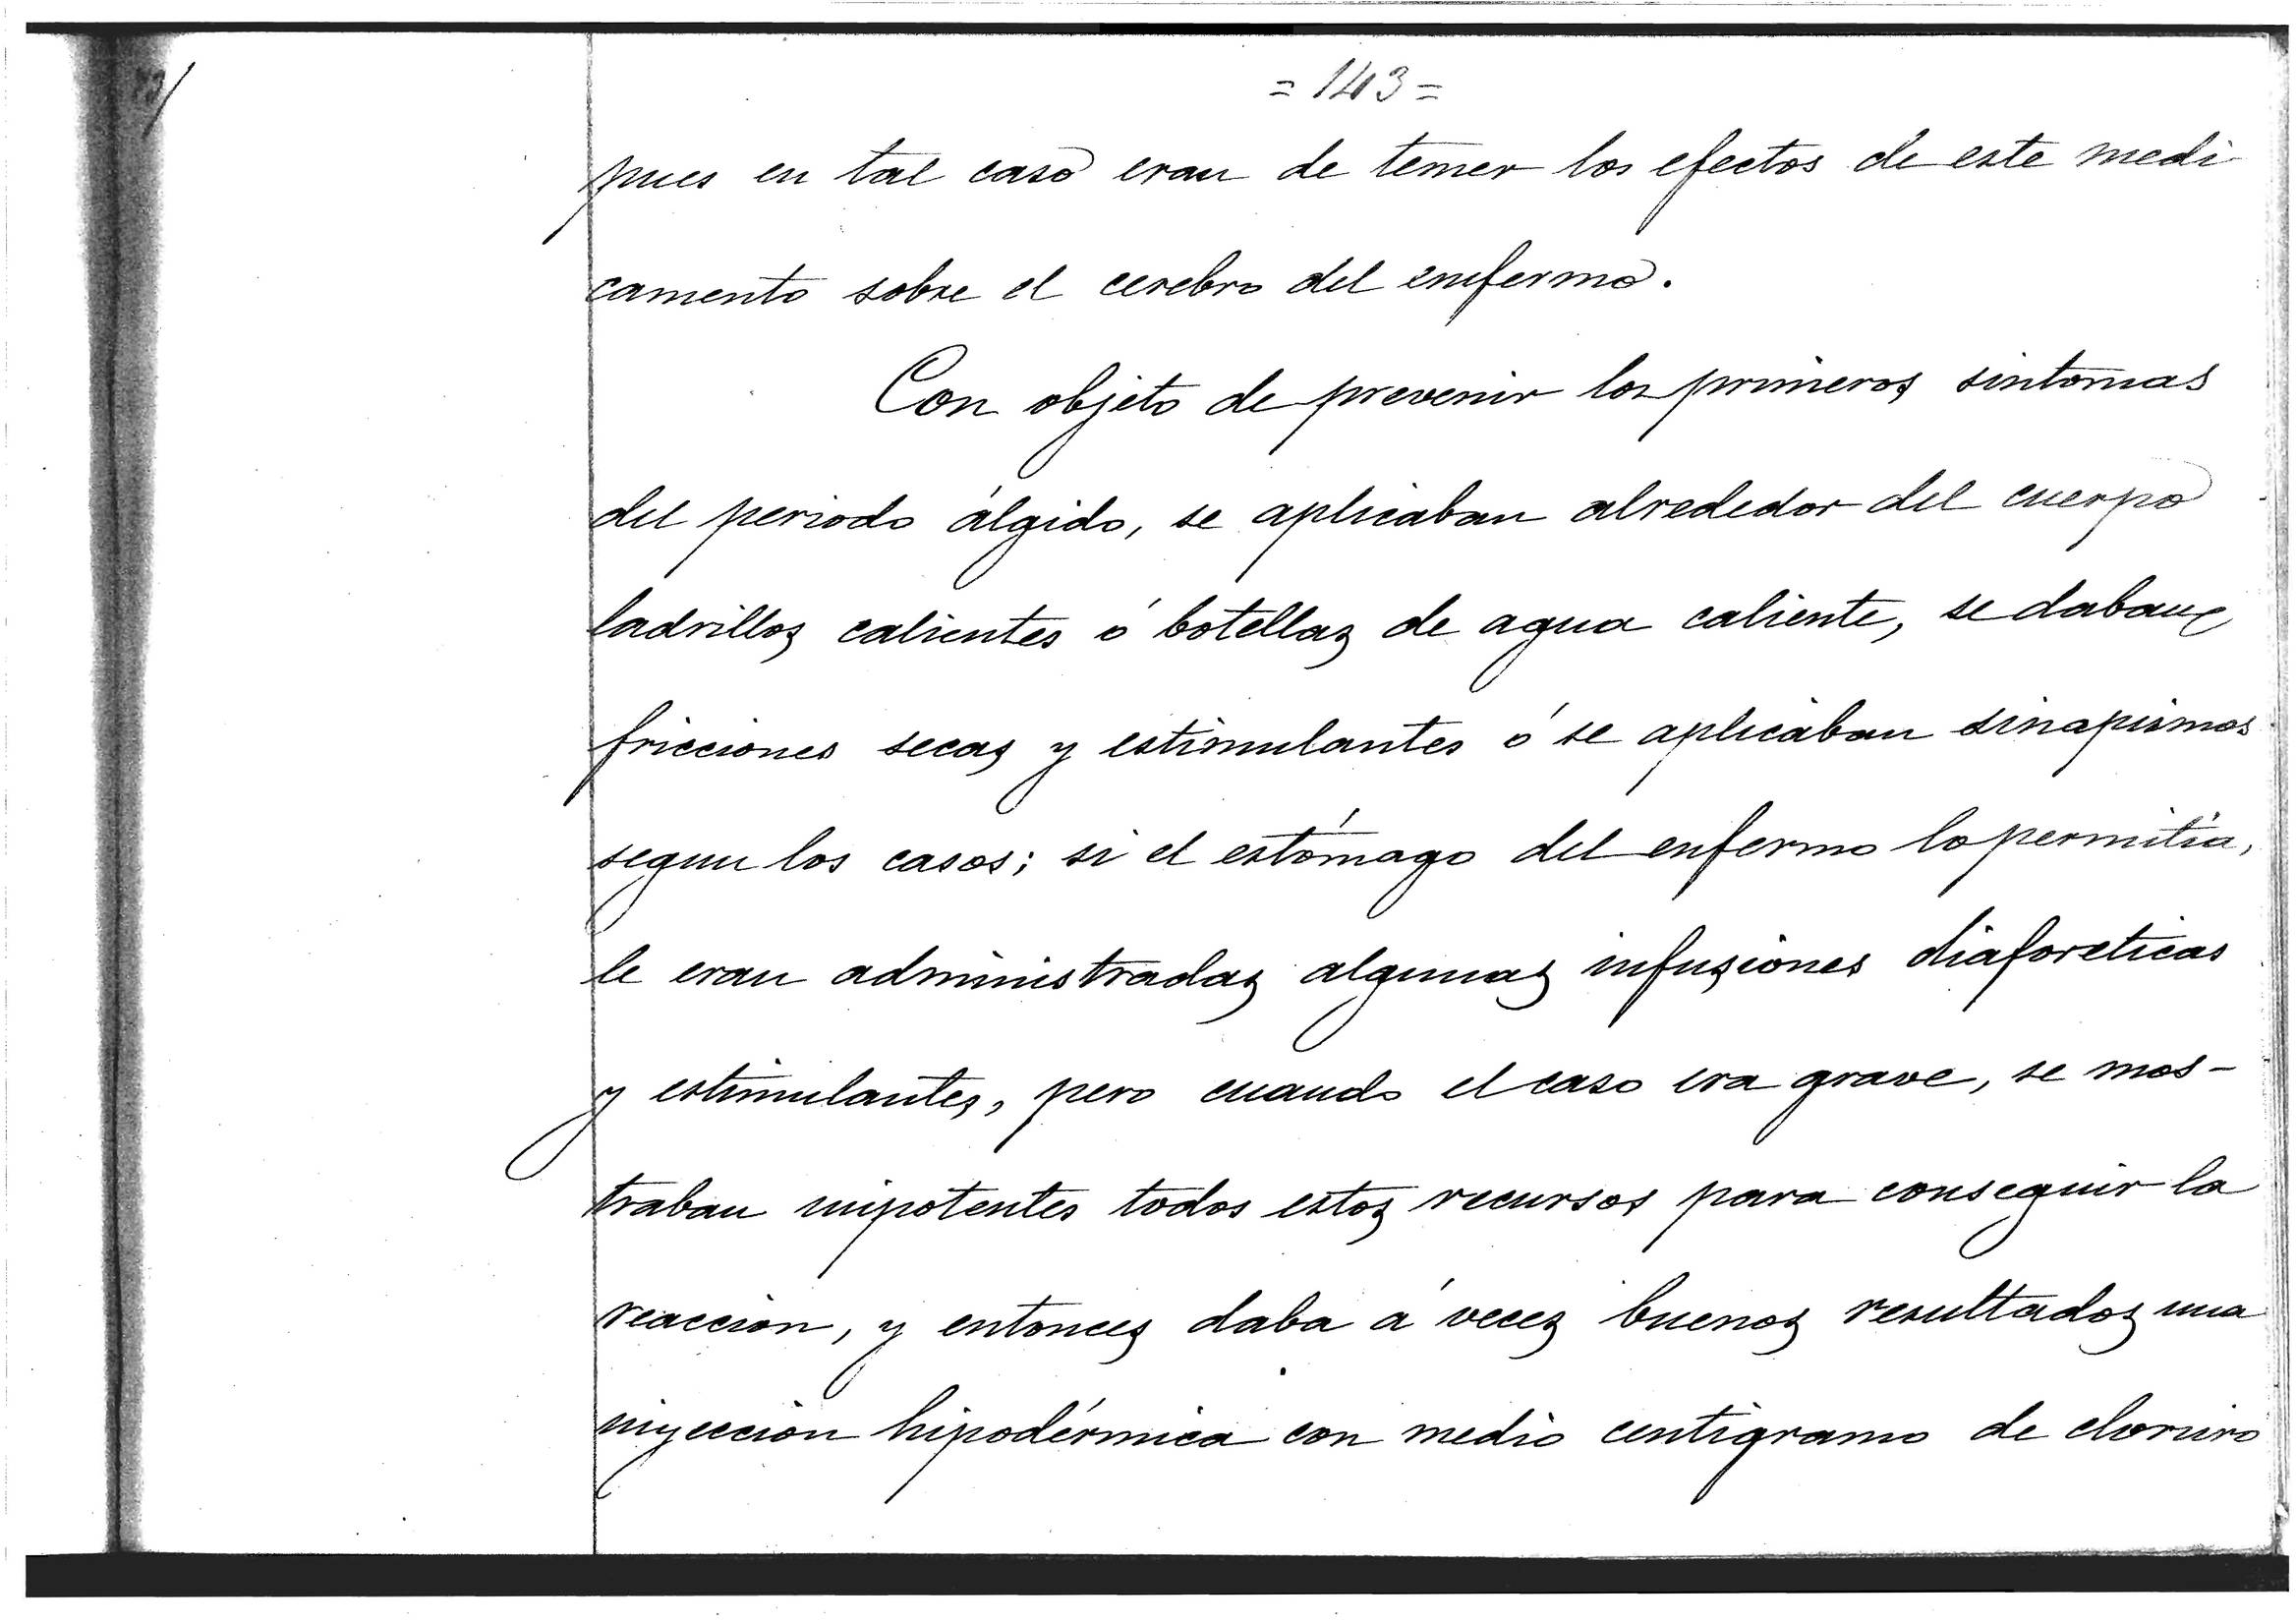 = 143 =
pues en tal caso eran de temer los efectos de este medi
camento sobre el cerebro del enfermo.
Con objeto de prevenir los primeros sintomas
del periodo álgido, se aplicaban alrededor del cuerpo
ladrillos calientes ó botellas de agua caliente, se daban
fricciones secas y estimulantes ó se aplicaban sinapismos
segun los casos; si el estómago del enfermo lo permitia,
le eran administradas algunas infusiones diaforeticas
y estimulantes, pero cuando el caso era grave, se mos-
traban impotentes todos estos recursos para conseguir la
reaccion, y entonces daba á veces buenos resultados una
inyeccion hipodérmica con medio centigramo de cloruro